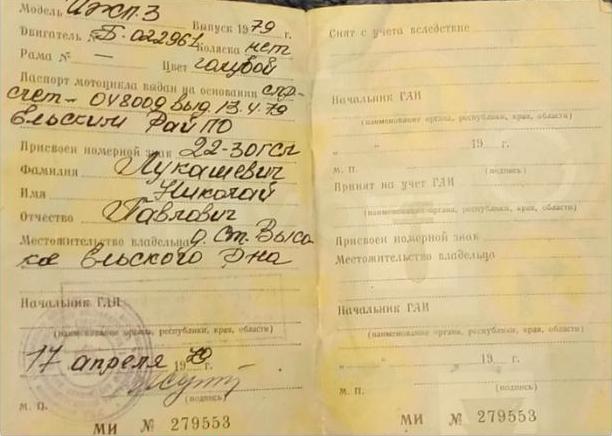 Модель ИЖП.3 Выпуск 1979 г.
Двигатель № Б-022964 Коляска нет
Рама № — Цвет голубой
Паспорт мотоцикла выдан на основании спр-
счет- 048009 выд 13.4.79
Ельским РайПО
Присвоен номерной знак 22-30гсп
Фамилия Лукашевич
Имя Николай
Отчество Павлович
Местожительство владельца д. Ст. Высо
кое Ельского р-на
Начальник ГАИ
(наименование органа, республики, края, области)
17 апреля 1979 г.
М. П. (подпись)
МИ № 279553
Снят с учета вследствие
Начальник ГАИ
(наименование органа, республики, края, области)
" " 19 г.
М. П. (подпись)
Принят на учет ГАИ
(наименование органа, республики, края, области)
Присвоен номерной знак
Местожительство владельца
Начальник ГАИ
(наименование органа, республики, края, области)
" " 19 г.
М. П. (подпись)
МИ № 279553